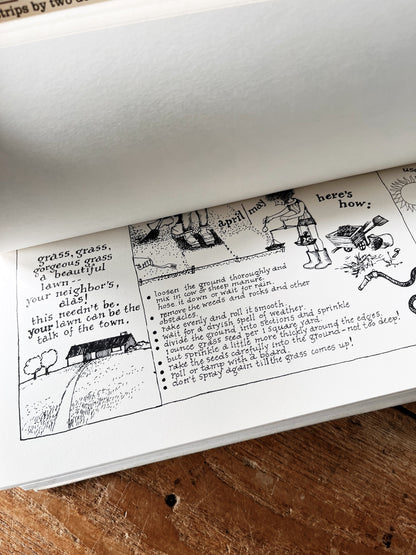 strips by two
grass, grass,
gorgeous grass
a beautiful
lawn -
your neighbor's,
alas!
this needn't be.
your lawn can be the
talk of the town.
april
may
here's
how:
• loosen the ground thoroughly and
mix in cow or sheep manure.
• hose it down or wait for rain.
• remove the weeds and rocks and other
obstacles.
• rake evenly and roll it smooth.
• wait for a dryish spell of weather.
• divide the ground into sections and sprinkle
1 ounce grass seed per 1 square yard.
• but sprinkle a little more thickly around the edges.
• rake the seeds carefully into the ground - not too deep!
• roll or tamp with a board.
• don't spray again till the grass comes up!